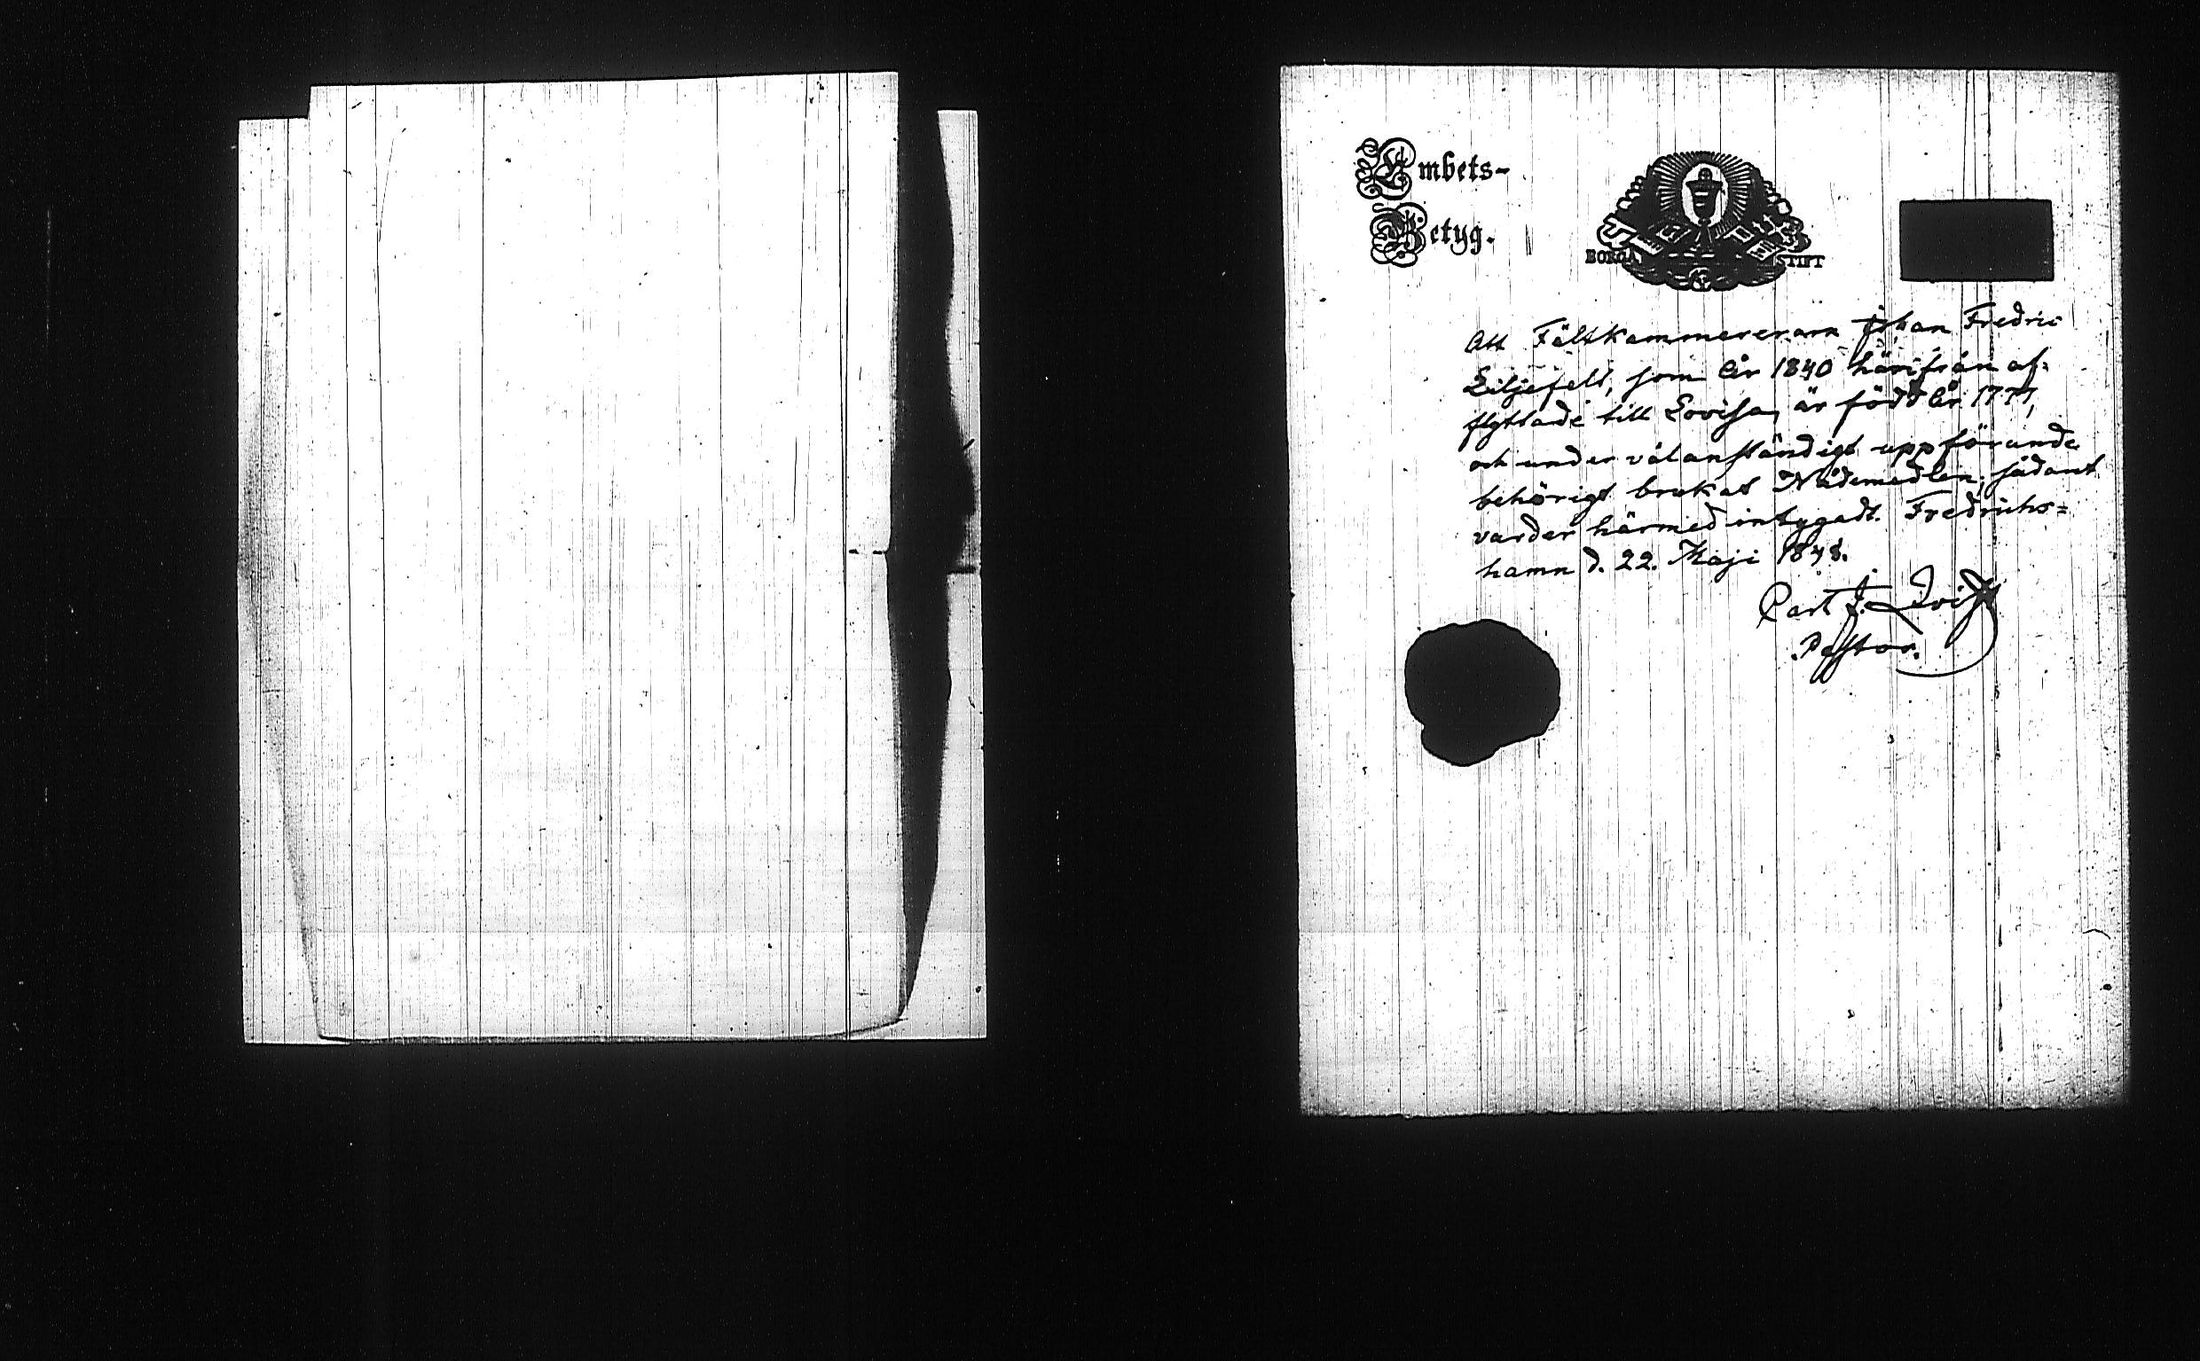 Embets-
Betyg.
BORGÅ STIFT
Att Fältkammereraren Johan Fredric
Liljefelt, som År 1840 härifrån af-
flyttade till Lovisa, är född År 1777,
och under välanständigt uppförande
behörigt brukat Nådemedlen; sådant
varder härmed intygadt. Fredrichs=
hamn d. 22. Maji 1843.
Carl J.
Pastor.